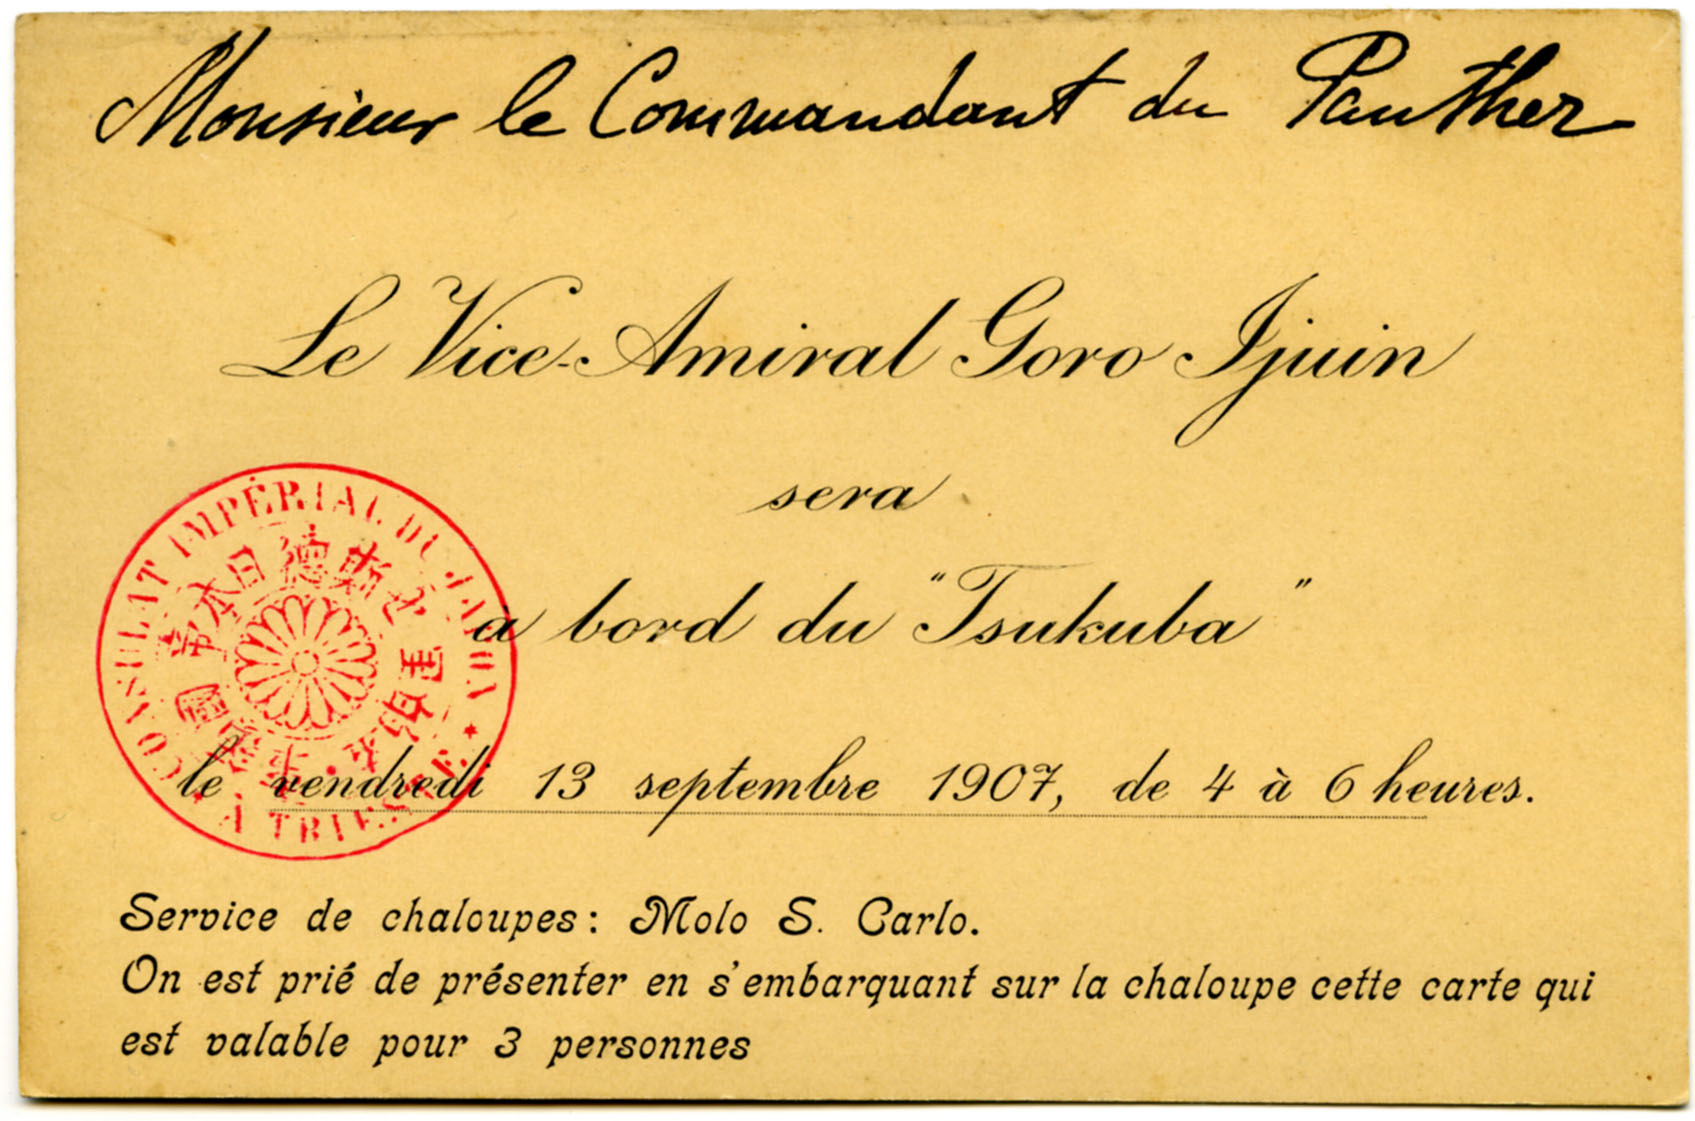 Monsieur le Commandant du Panther
Le Vice-Amiral Goro Ijuin
sera
à bord du "Tsukuba"
le vendredi 13 septembre 1907, de 4 à 6 heures.
Service de chaloupes: Molo S. Carlo.
On est prié de présenter en s'embarquant sur la chaloupe cette carte qui
est valable pour 3 personnes
CONSULAT IMPÉRIAL DU JAPON
A TRIESTE